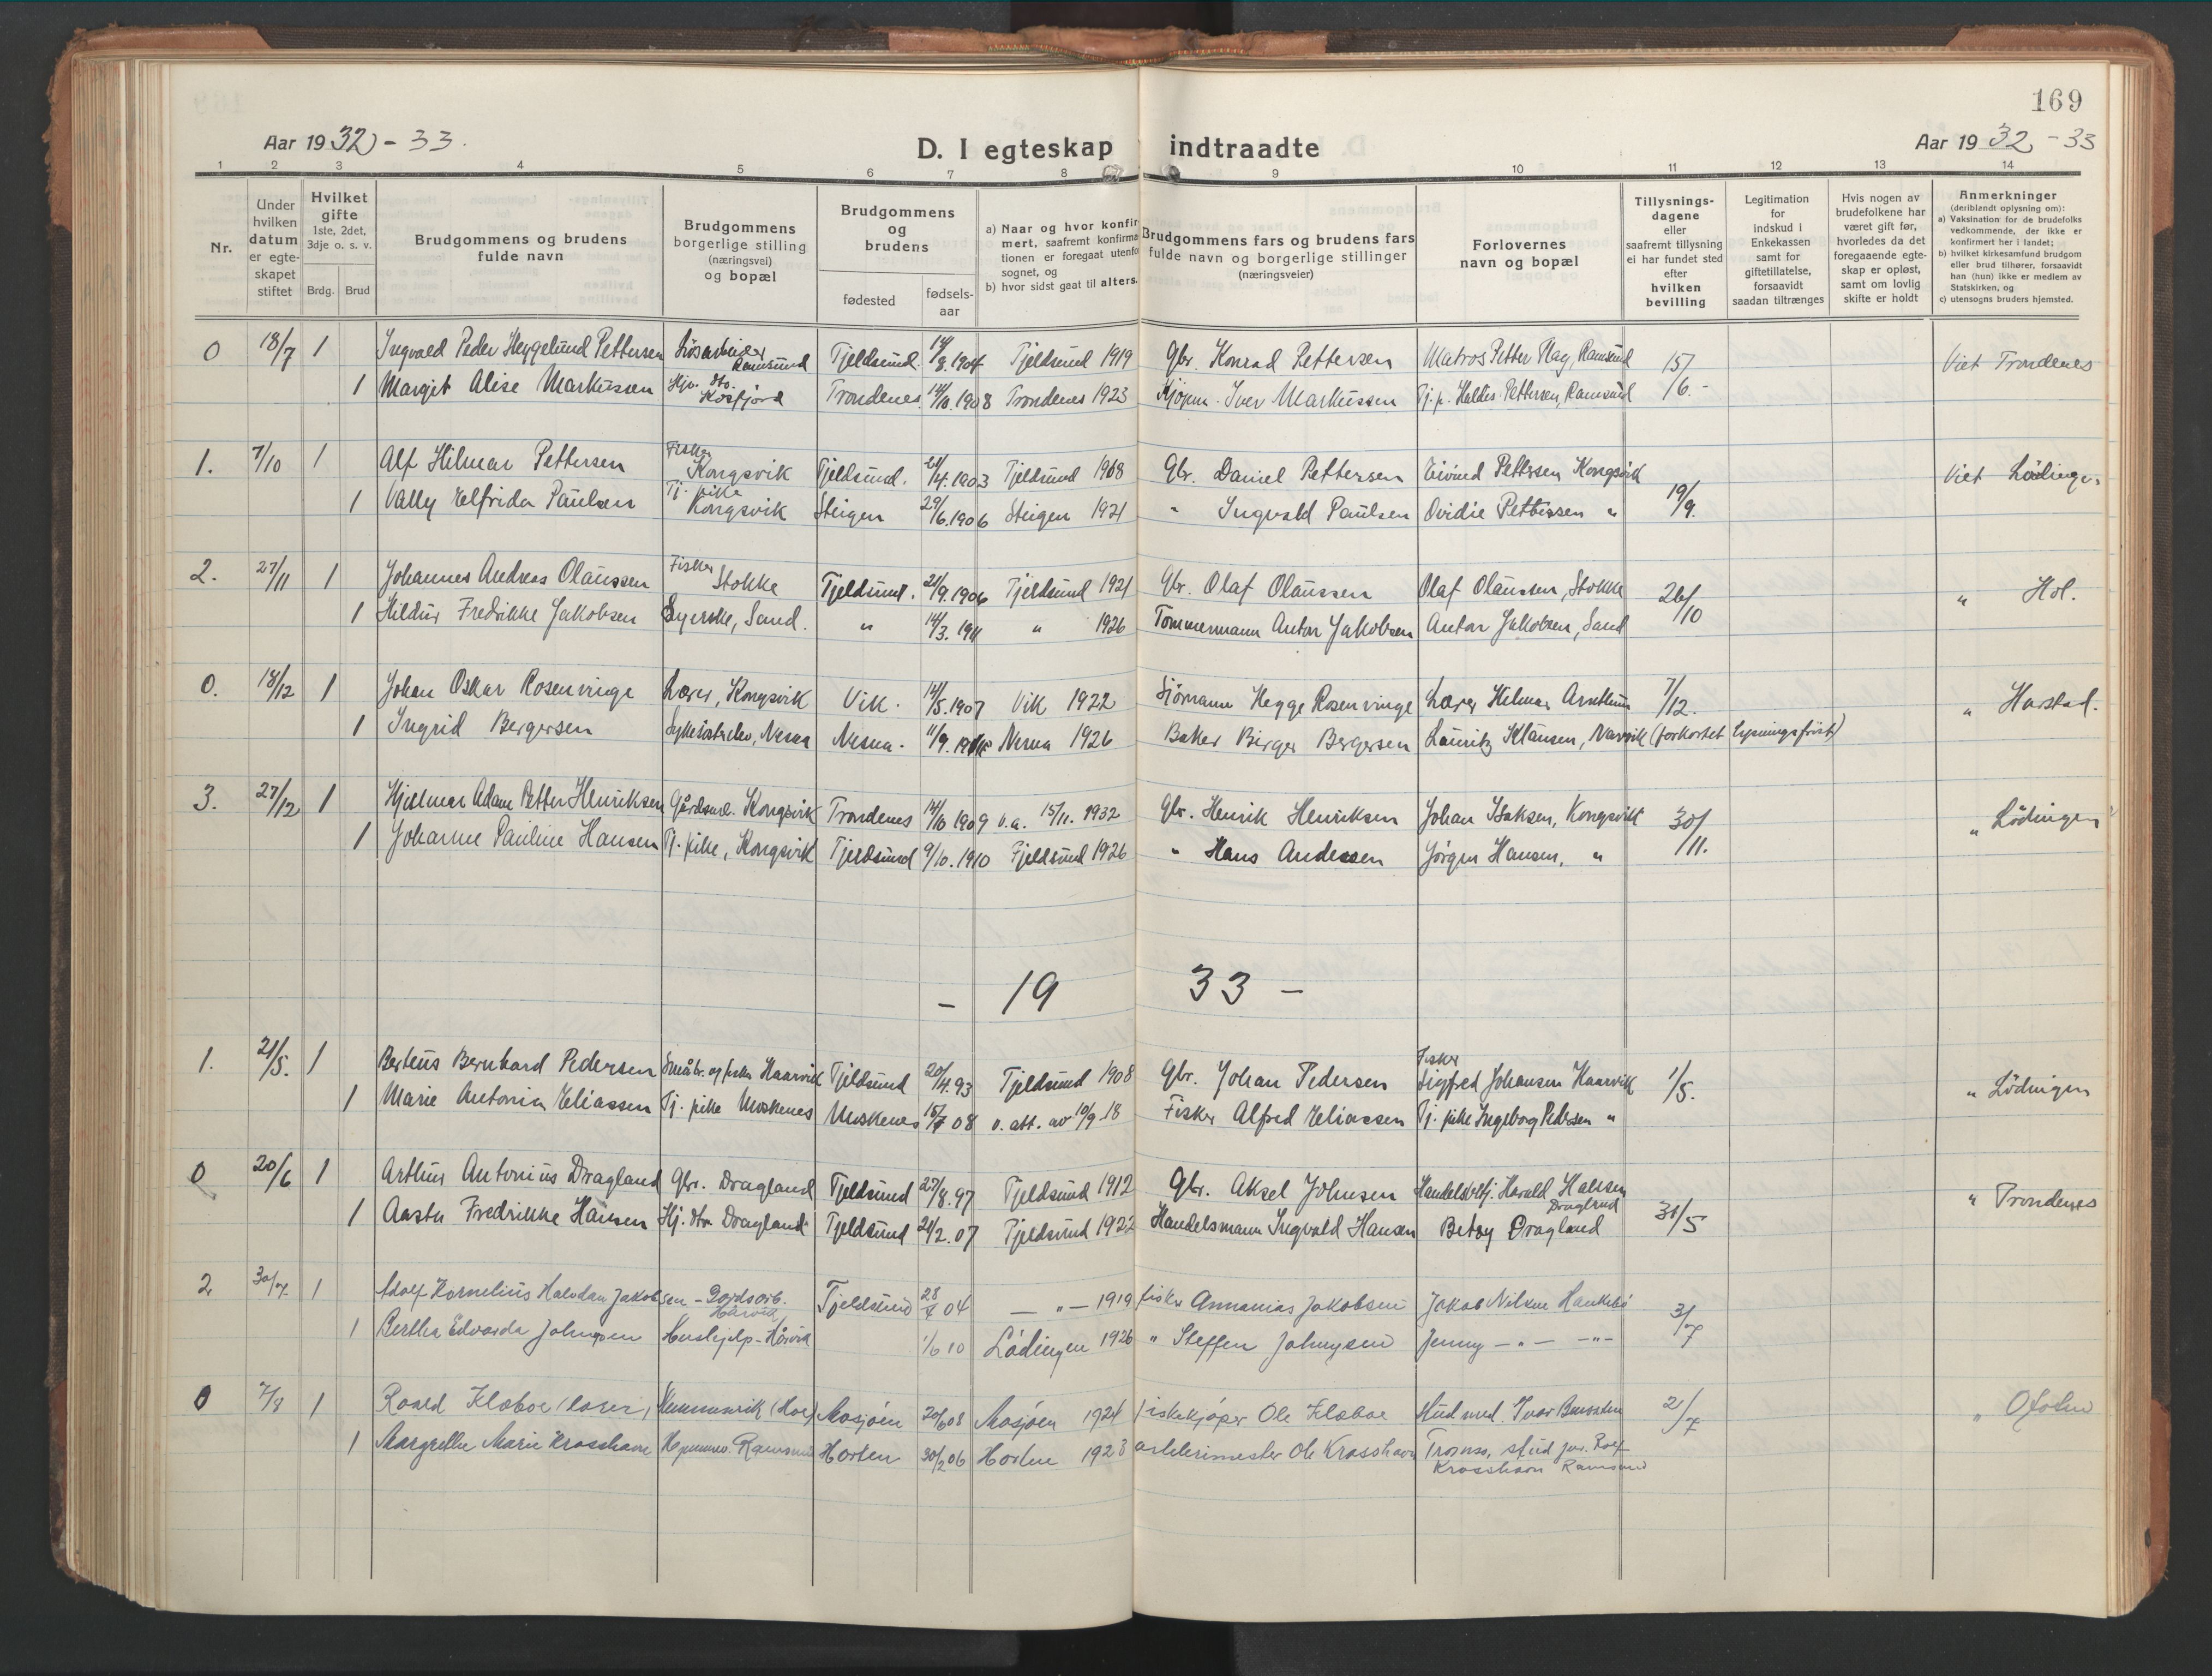 169
Aar 1932 - 33.
D. I egteskap indtraadte
Aar 1932 - 33
1 2 3 4 5 6 7 8 9 10 11 12 13 14
Nr.
Under hvilken datum er egteskapet stiftet
Hvilket gifte 1ste, 2det, 3dje o. s. v.
Brdg. Brud
Brudgommens og brudens fulde navn
Brudgommens borgerlige stilling (næringsvei) og bopæl
Brudgommens og brudens
fødested
fødselsaar
a) Naar og hvor konfirmert, saafremt konfirmationen er foregaat utenfor sognet, og
b) hvor sidst gaat til alters.
Brudgommens fars og brudens fars fulde navn og borgerlige stillinger (næringsveier)
Forlovernes navn og bopæl
Tillysningsdagene eller saafremt tillysning ei har fundet sted efter hvilken bevilling
Legitimation for indskud i Enkekassen samt for giftetillatelse, forsaavidt saadan tiltrænges
Hvis nogen av brudefolkene har været gift før, hvorledes da det foregaaende egteskap er opløst, samt om lovlig skifte er holdt
Anmerkninger
(deriblandt oplysning om):
a) Vaksination for de brudefolks vedkommende, der ikke er konfirmert her i landet;
b) hvilket kirkesamfund brudgom eller brud tilhører, forsaavidt han (hun) ikke er medlem av Statskirken, og
c) utensogns bruders hjemsted.
0 18/7 1 Ingvald Peder Heggelund Pettersen Løsarbeider Ramsund Tjeldsund. 14/8.1904 Tjeldsund 1919 Gbr. Konrad Pettersen Matros Petter Hay, Ramsund 15/6.- Viet Trondenes
1 Margit Alise Markussen Hjv. dtr. Kosfjord Trondenes 14/10.1908 Trondenes 1923 Kjøpm. Iver Markussen Tj. p. Haldis Pettersen, Ramsund
1. 7/10 1 Alf Hilmar Pettersen Fisker Kongsvik Tjeldsund. 21/4.1903 Tjeldsund 1908 Gbr. Daniel Pettersen Eivind Pettersen Kongsvik 19/9. Viet Lødingen
1 Vally Elfrida Paulsen Tj. pike Kongsvik Steigen 29/6.1906 Steigen 1921 " Ingvald Paulsen Ovidie Pettersen "
2. 27/11 1 Johannes Andreas Olaussen Fisker Stokke Tjeldsund. 21/9.1906 Tjeldsund 1921 Gbr. Olaf Olaussen Olaf Olaussen, Stokke 26/10 " Hol.
1 Hildur Fredrikke Jakobsen Syerske, Sand. " 14/3.1911 " 1926 Tømmermann Anton Jakobsen Anton Jakobsen, Sand
0. 18/12 1 Johan Oskar Rosenvinge Lærer, Kongsvik Vik. 14/5.1907 Vik 1922 Sjømann Hegge Rosenvinge Lærer Hilmar 7/12. " Harstad.
1 Ingrid Bergersen Nesna Nesna. 11/9. Nesna 1926 Baker Birger Bergersen Lauritz Klausen, Narvik (forkortet lysningsfrist)
3. 27/12 1 Hjalmar Adam Petter Henriksen Gårdsarb. Kongsvik Trondenes 14/10 1909 v.a. 15/11. 1932 Gbr. Henrik Henriksen Johan Isaksen, Kongsvik 30/11. " Lødingen
1 Johanne Pauline Hansen Tj. pike, Kongsvik Tjeldsund 9/10.1910 Tjeldsund 1926 " Hans Andersen Jørgen Hansen, "
- 19 33 -
1. 21/5. 1 Berteus Bernhard Pedersen Småbr. og fisker Haarvik Tjeldsund 20/4.93 Tjeldsund 1908 Gbr. Johan Pedersen Fisker Sigfred Johansen Haarvik 1/5. " Lødingen
1 Marie Antonie Eliassen Tj. pike Moskenes Moskenes 15/7 08 v. att. av 10/9 18 Fisker Alfred Eliassen Tj. pike Ingeborg Pedersen "
0 20/6 1 Arthur Antonius Dragland Gbr. Dragland Tjeldsund 27/8.97 Tjeldsund 1912 Gbr. Aksel Johnsen Handelsbetj. Harald Hansen Dragland 31/5 " Trondenes
1 Aasta Fredrikke Hansen Hj. dtr Dragland Tjeldsund 21/2.07 Tjeldsund 1922 Handelsmann Ingvald Hansen Betsy Dragland
2 30/7. 1 Adolf Kornelius Halvdan Jakobsen - Gårdsarb. Hårvik Tjeldsund 28/7 04 - " - 1919 fisker Annanias Jakobsen Jakob Nilsen 3/7
1 Bertha Edvarda Johnysen Hushjelp - Hårvik 1/6 10 Lødingen 1926 " Steffen Johnysen Jenny - " - - " -
0 7/8 1 Roald Klæboe (lærer) (Hol) Mosjøen 20/6 08 Mosjøen 1924 fiskekjøper Ole Klæboe Stud med. Ivar 2/7 " Ofoten
1 Margrethe Marie Krosshavn Ramsund Horten 30/2 06 Horten 1923 artelerimester Ole Krosshavn Tromsø, stud jur. Rolf
Krosshavn Ramsund